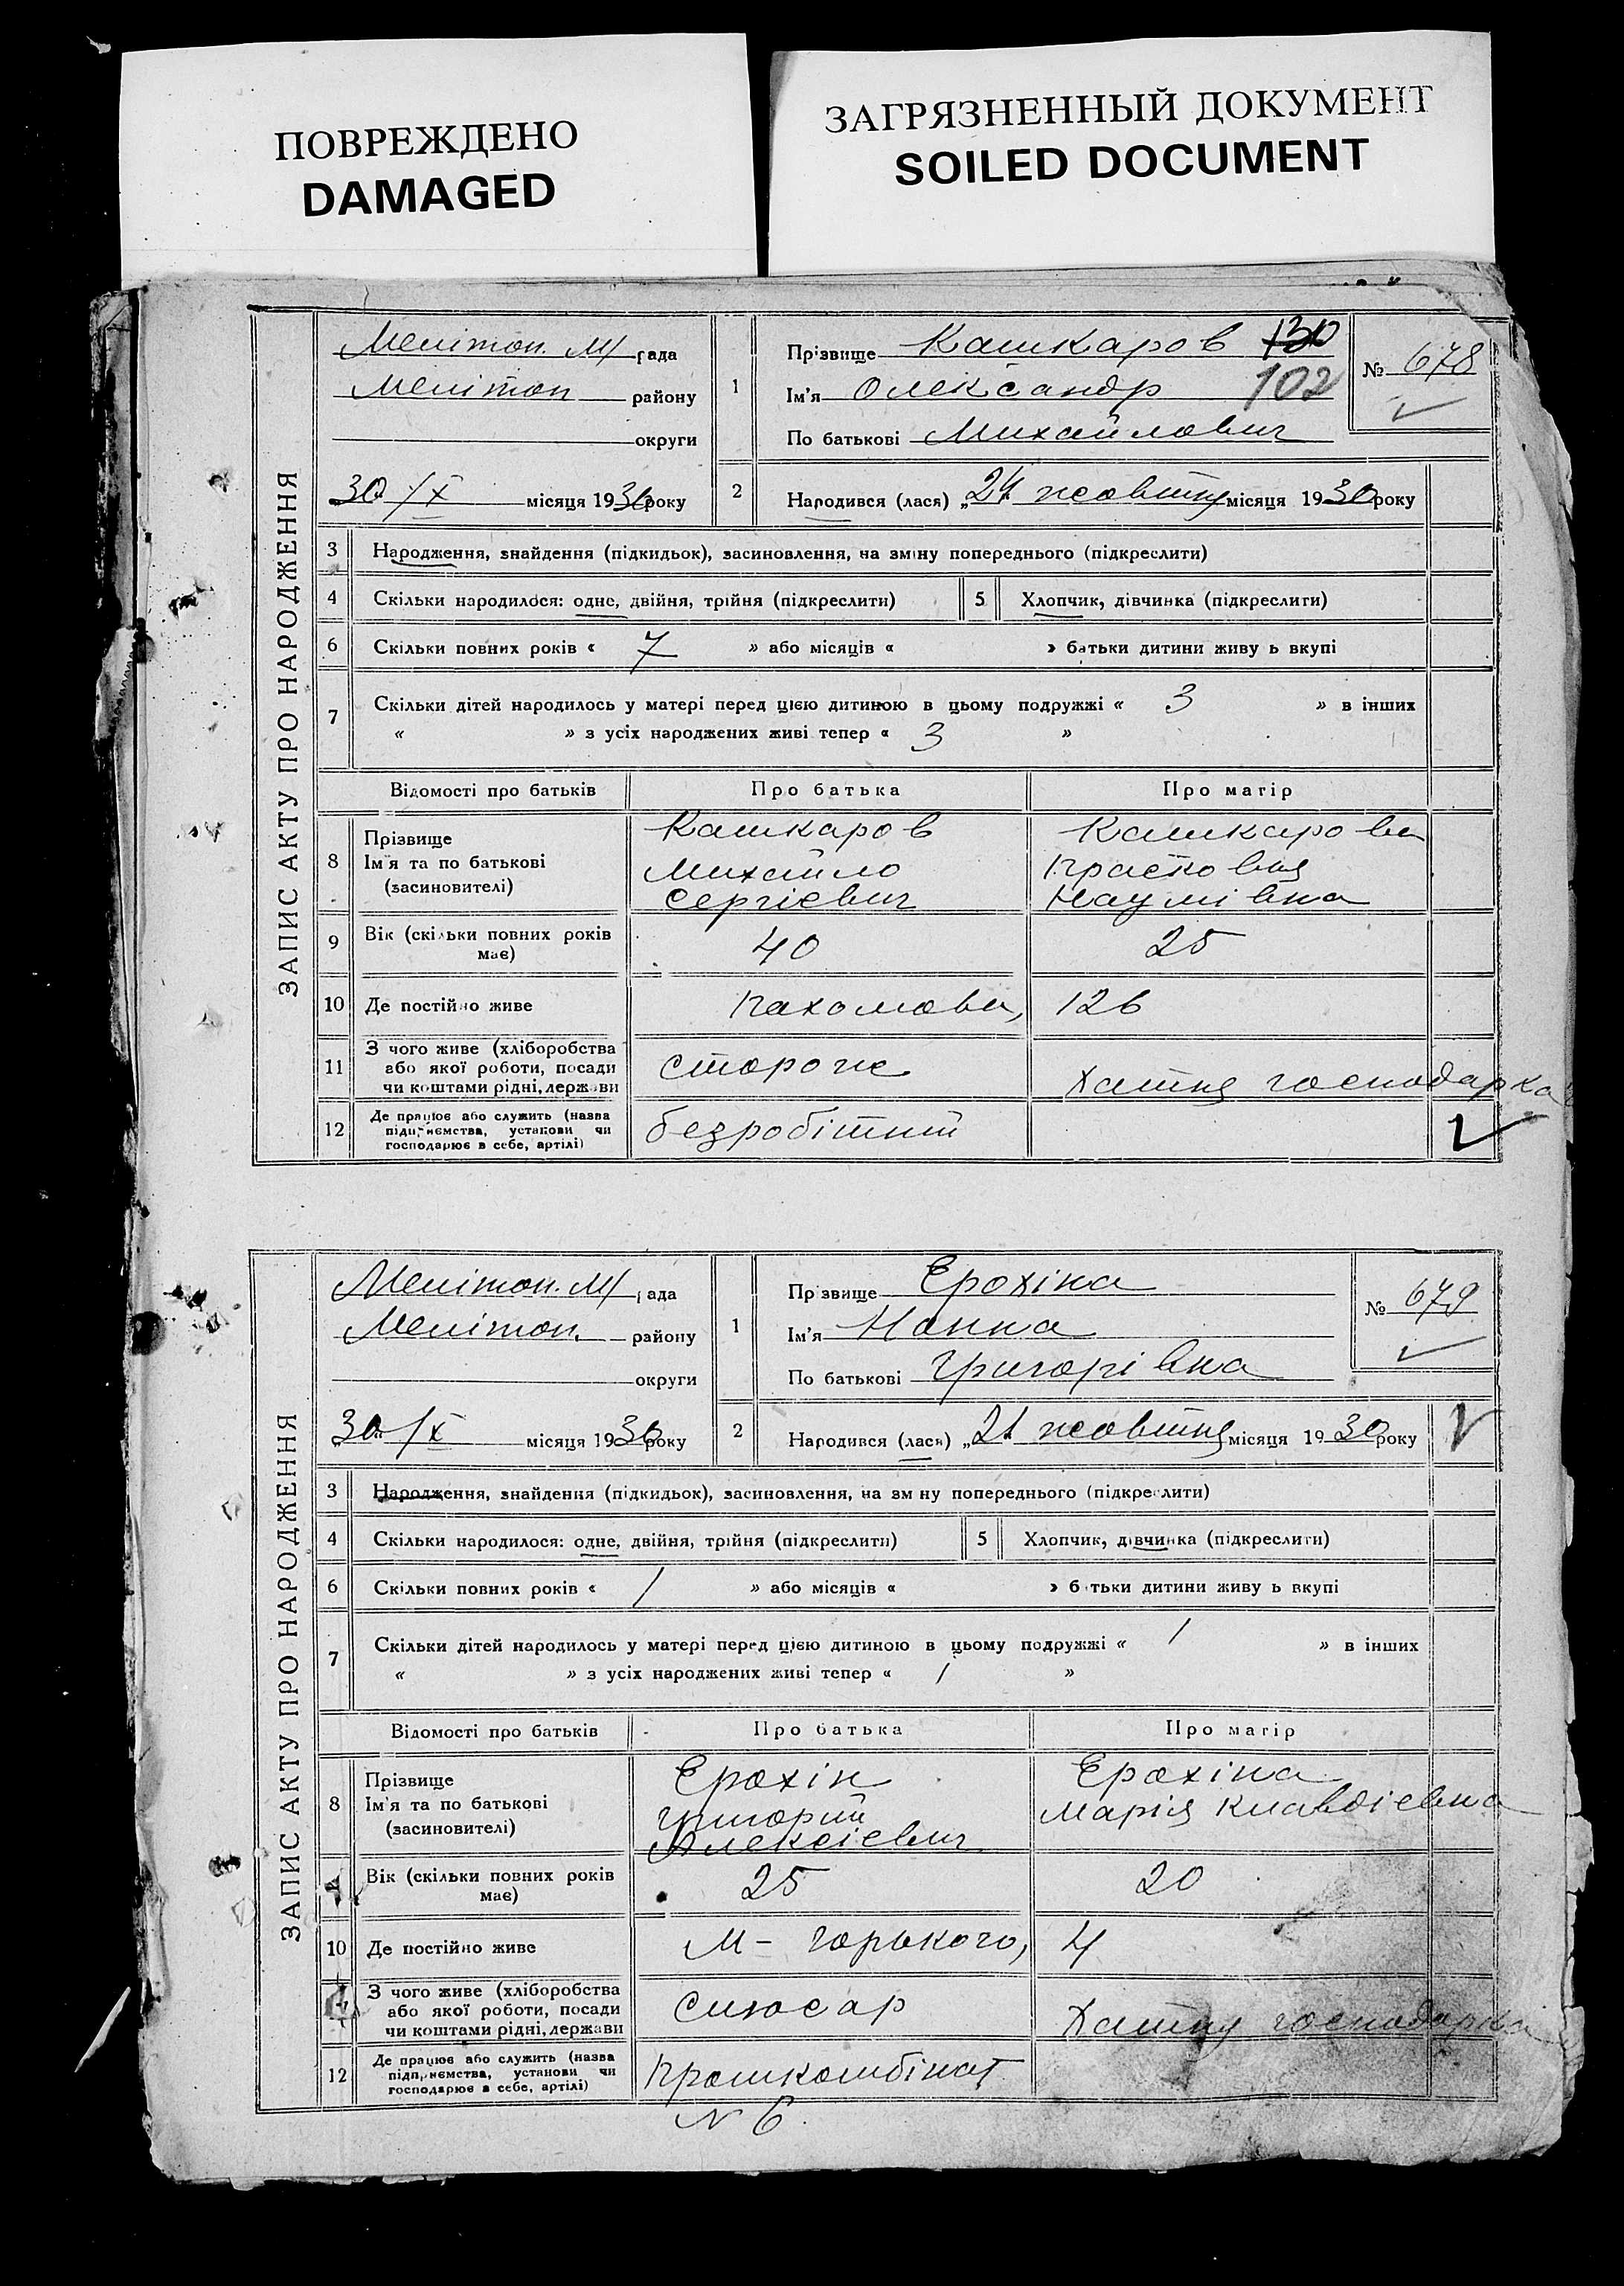 ПОВРЕЖДЕНО
DAMAGED
ЗАГРЯЗНЕННЫЙ ДОКУМЕНТ
SOILED DOCUMENT
ЗАПИС АКТУ ПРО НАРОДЖЕННЯ
Мелітоп. М/рада
Мелітоп району
округи
30 /X місяця 1930 року
1
Прізвище Кашкаров 130
Ім'я Олександр 102
По батькові Михайлович
№ 678
2 Народився (лася) „24 жовтня місяця 1930 року
3 Народження, знайдення (підкидьок), засиновлення, на зміну попереднього (підкреслити)
4 Скільки народилося: одне, двійня, трійня (підкреслити) 5 Хлопчик, дівчинка (підкреслити)
6 Скільки повних років « 7 » або місяців « » батьки дитини живуть вкупі
7 Скільки дітей народилось у матері перед цією дитиною в цьому подружжі « 3 » в інших
« » з усіх народжених живі тепер « 3 »
Відомості про батьків Про батька Про матір
8 Прізвище Ім'я та по батькові (засиновителі)
Кашкаров Кашкарова
Михайло Працковія
Сергієвич Наумівна
9 Вік (скільки повних років має) 40 25
10 Де постійно живе Пахомова, 126
11 З чого живе (хліборобства або якої роботи, посади чи коштами рідні, держави Сторож Хатня господарка
12 Де працює або служить (назва підприємства, установи чи господарює в себе, артілі) безробітний
ЗАПИС АКТУ ПРО НАРОДЖЕННЯ
Мелітоп. М/рада
Мелітоп. району
округи
30 /X місяця 1930 року
1
Прізвище Єрохіна
Ім'я Нонна
По батькові Григорівна
№ 679
2 Народився (лася) „21 жовтня місяця 1930 року
3 Народження, знайдення (підкидьок), засиновлення, на зміну попереднього (підкреслити)
4 Скільки народилося: одне, двійня, трійня (підкреслити) 5 Хлопчик, дівчинка (підкреслити)
6 Скільки повних років « 1 » або місяців « » батьки дитини живуть вкупі
7 Скільки дітей народилось у матері перед цією дитиною в цьому подружжі « 1 » в інших
« » з усіх народжених живі тепер « 1 »
Відомості про батьків Про батька Про матір
8 Прізвище Ім'я та по батькові (засиновителі)
Єрохін Єрохіна
Григорий Марія Клавдієвна
Алексієвич
Вік (скільки повних років має) 25 20
10 Де постійно живе М- Горького, 4
З чого живе (хліборобства або якої роботи, посади чи коштами рідні, держави Слюсар Хатня господарка
12 Де працює або служить (назва підприємства, установи чи господарює в себе, артілі) Промкомбінат
N 6